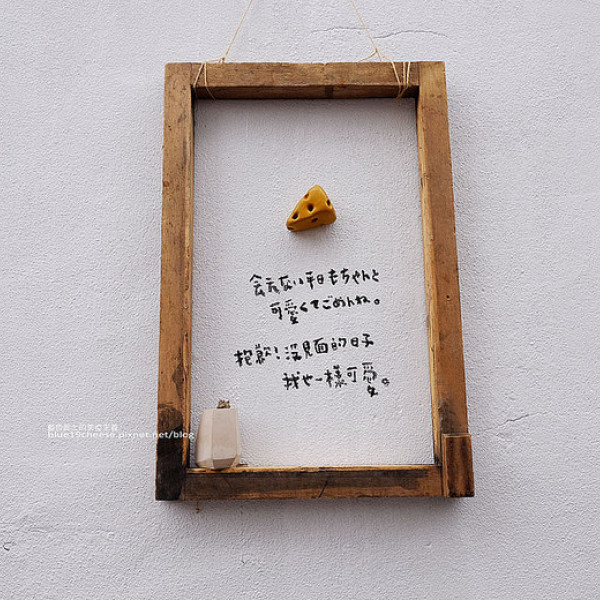 会えない平日もちゃんと
可愛くてごめんね。
抱歉!沒見面的日子
我也一樣可愛。
blue19cheese.pixnet.net/blog